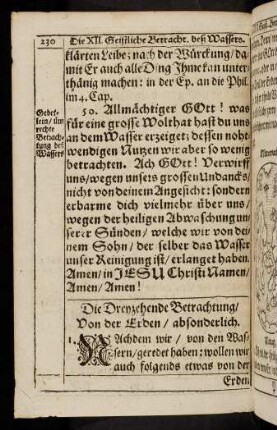 230 Die XII. Geistliche Betracht. deß Wassers.
klärten Leibe; nach der Würckung/ da-
mit Er auch alle Ding Ihme kan unter-
thänig machen: in der Ep. an die Phil.
im 4. Cap.
50. Allmächtiger GOtt! was
für eine grosse Wolthat hast du uns
an dem Wasser erzeiget; dessen noht-
wendigen Nutzen wir aber so wenig
betrachten. Ach GOtt! Verwirff
uns/ wegen unsers grossen Undancks/
nicht von deinem Angesicht: sondern
erbarme dich vielmehr über uns/
wegen der heiligen Abwaschung un-
serer Sünden/ welche wir von dei-
nem Sohn/ der selber das Wasser
unser Reinigung ist/ erlanget haben.
Amen/ in JESU Christi Namen/
Amen/ Amen!
Gebet-
lein/ üm
rechte
Betrach-
tung deß
Wassers
Die Dreyzehende Betrachtung/
Von der Erden/ absonderlich.
1. NAchdem wir/ von den Was-
sern/ geredet haben: wollen wir
auch folgends etwas von der
Erden